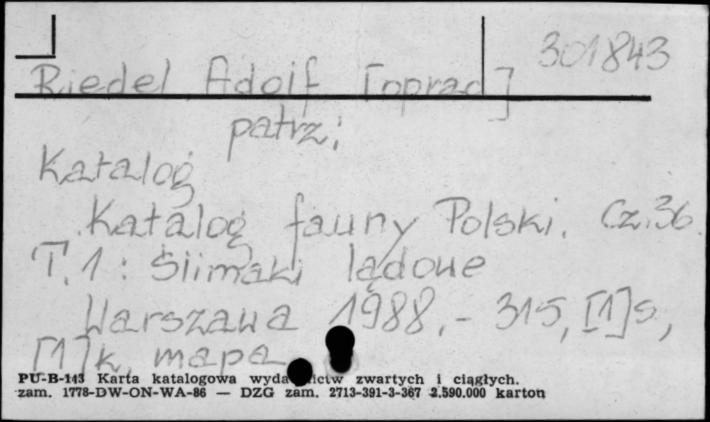 301843
Riedel Adolf [oprac]
patrz:
Katalog
Katalog fauny Polski. Cz. 36.
T. 1: Ślimaki lądowe
Warszawa 1988. - 315, [1] s,
[1] k. mapa
PU-B-143 Karta katalogowa wydawnictw zwartych i ciągłych.
zam. 1778-DW-ON-WA-86 — DZG zam. 2713-391-3-367 2.590.000 karton